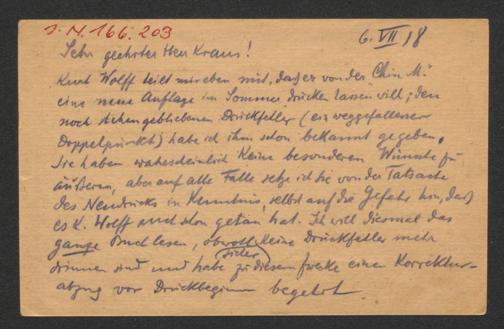 J. N. 166.203
6. VII 18
Sehr geehrter Herr Kraus!
Kurt Wolff teilt mir eben mit, daß er von der „Chin. M."
eine neue Auflage im Sommer drucken lassen will; den
noch stehengebliebenen Druckfehler (ein weggefallener
Doppelpunkt) habe ich ihm schon bekannt gegeben.
Sie haben wahrscheinlich keine besonderen Wünsche zu
äußern, aber auf alle Fälle setze ich Sie von der Tatsache
des Neudrucks in Kenntnis, selbst auf die Gefahr hin, daß
es K. Wolff auch schon getan hat. Ich will diesmal das
ganze Buch lesen, obwohl keine Druckfehler mehr
drinnen sind und habe zu diesem Zwecke einen Korrektur-
abzug vor Druckbeginn begehrt.